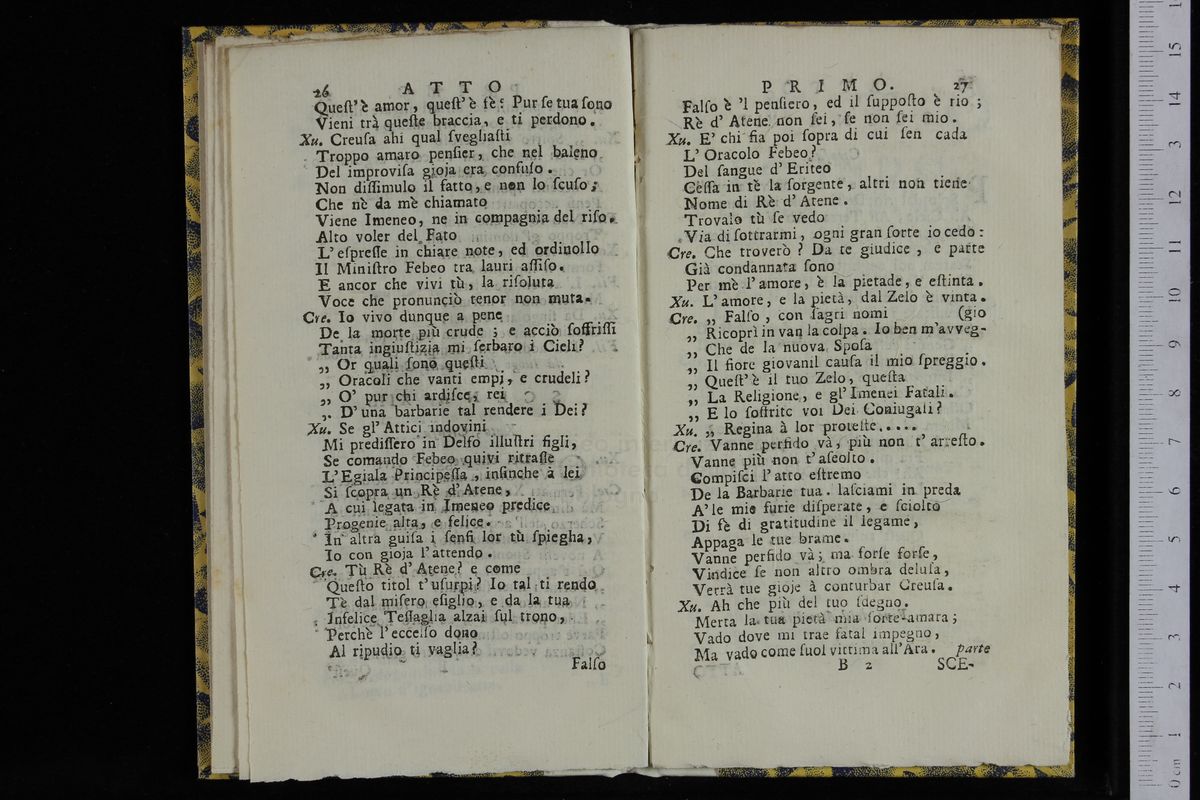 26 ATTO
Queſt' è amor, queſt' è fè: Pur ſe tua ſono
Vieni trà queſte braccia, e ti perdono.
Xu. Creuſa ahi qual ſvegliaſti
Troppo amaro penſier, che nel baleno
Del improviſa gioja era confuſo.
Non diſſimulo il fatto, e non lo ſcuſo;
Che nè da mè chiamato
Viene Imeneo, ne in compagnia del riſo.
Alto voler del Fato
L' eſpreſſe in chiare note, ed ordinollo
Il Miniſtro Febeo tra lauri aſſiſo.
E ancor che vivi tù, la riſoluta
Voce che pronunciò tenor non muta.
Cre. Io vivo dunque a pene
De la morte più crude; e acciò ſoffriſſi
Tanta ingiuſtizia mi ſerbaro i Cieli?
„ Or quali ſono queſti
„ Oracoli che vanti empj, e crudeli?
„ O' pur chi ardiſce, rei
„ D' una barbarie tal rendere i Dei?
Xu. Se gl' Attici indovini
Mi prediſſero in Delfo illuſtri figli,
Se comando Febeo quivi ritraſſe
L' Egiala Principeſſa, inſinche à lei
Si ſcopra un Rè d' Atene,
A cui legata in Imeneo predice
Progenie alta, e felice.
In altra guiſa i ſenſi lor tù ſpiegha,
Io con gioja l' attendo.
Cre. Tù Rè d' Atene? e come
Queſto titol t' uſurpi? Io tal ti rendo
Tè dal miſero eſiglio, e da la tua
Infelice Teſſaglia alzai ſul trono,
Perchè l' eccelſo dono
Al ripudio ti vaglia?
Falſo
PRIMO. 27
Falſo è 'l penſiero, ed il ſuppoſto è rio;
Rè d' Atene non ſei, ſe non ſei mio.
Xu. E' chi fia poi ſopra di cui ſen cada
L' Oracolo Febeo?
Del ſangue d' Eriteo
Ceſſa in tè la ſorgente, altri non tiene
Nome di Rè d' Atene.
Trovalo tù ſe vedo
Via di ſottrarmi, ogni gran ſorte io cedo:
Cre. Che troverò? Da te giudice, e parte
Già condannata ſono
Per mè l' amore, è la pietade, e eſtinta.
Xu. L' amore, e la pietà, dal Zelo è vinta.
Cre. „ Falſo, con ſagri nomi (gio
„ Ricoprì in van la colpa. Io ben m'avveg-
„ Che de la nuova Spoſa
„ Il fiore giovanil cauſa il mio ſpreggio.
„ Queſt' è il tuo Zelo, queſta
„ La Religione, e gl' Imenei Fatali.
„ E lo ſoffrite voi Dei Coniugali?
Xu. „ Regina à lor proteſte.....
Cre. Vanne perfido và, più non t' arreſto.
Vanne più non t' aſeolto.
Compiſci l' atto eſtremo
De la Barbarie tua. laſciami in preda
A' le mie furie diſperate, e ſciolto
Di fè di gratitudine il legame,
Appaga le tue brame.
Vanne perfido và; ma forſe forſe,
Vindice ſe non altro ombra deluſa,
Verrà tue gioje à conturbar Creuſa.
Xu. Ah che più del tuo ſdegno.
Merta la tua pietà mia ſorte amara;
Vado dove mi trae fatal impegno,
Ma vado come ſuol vittima all' Ara. parte
B 2 SCE-